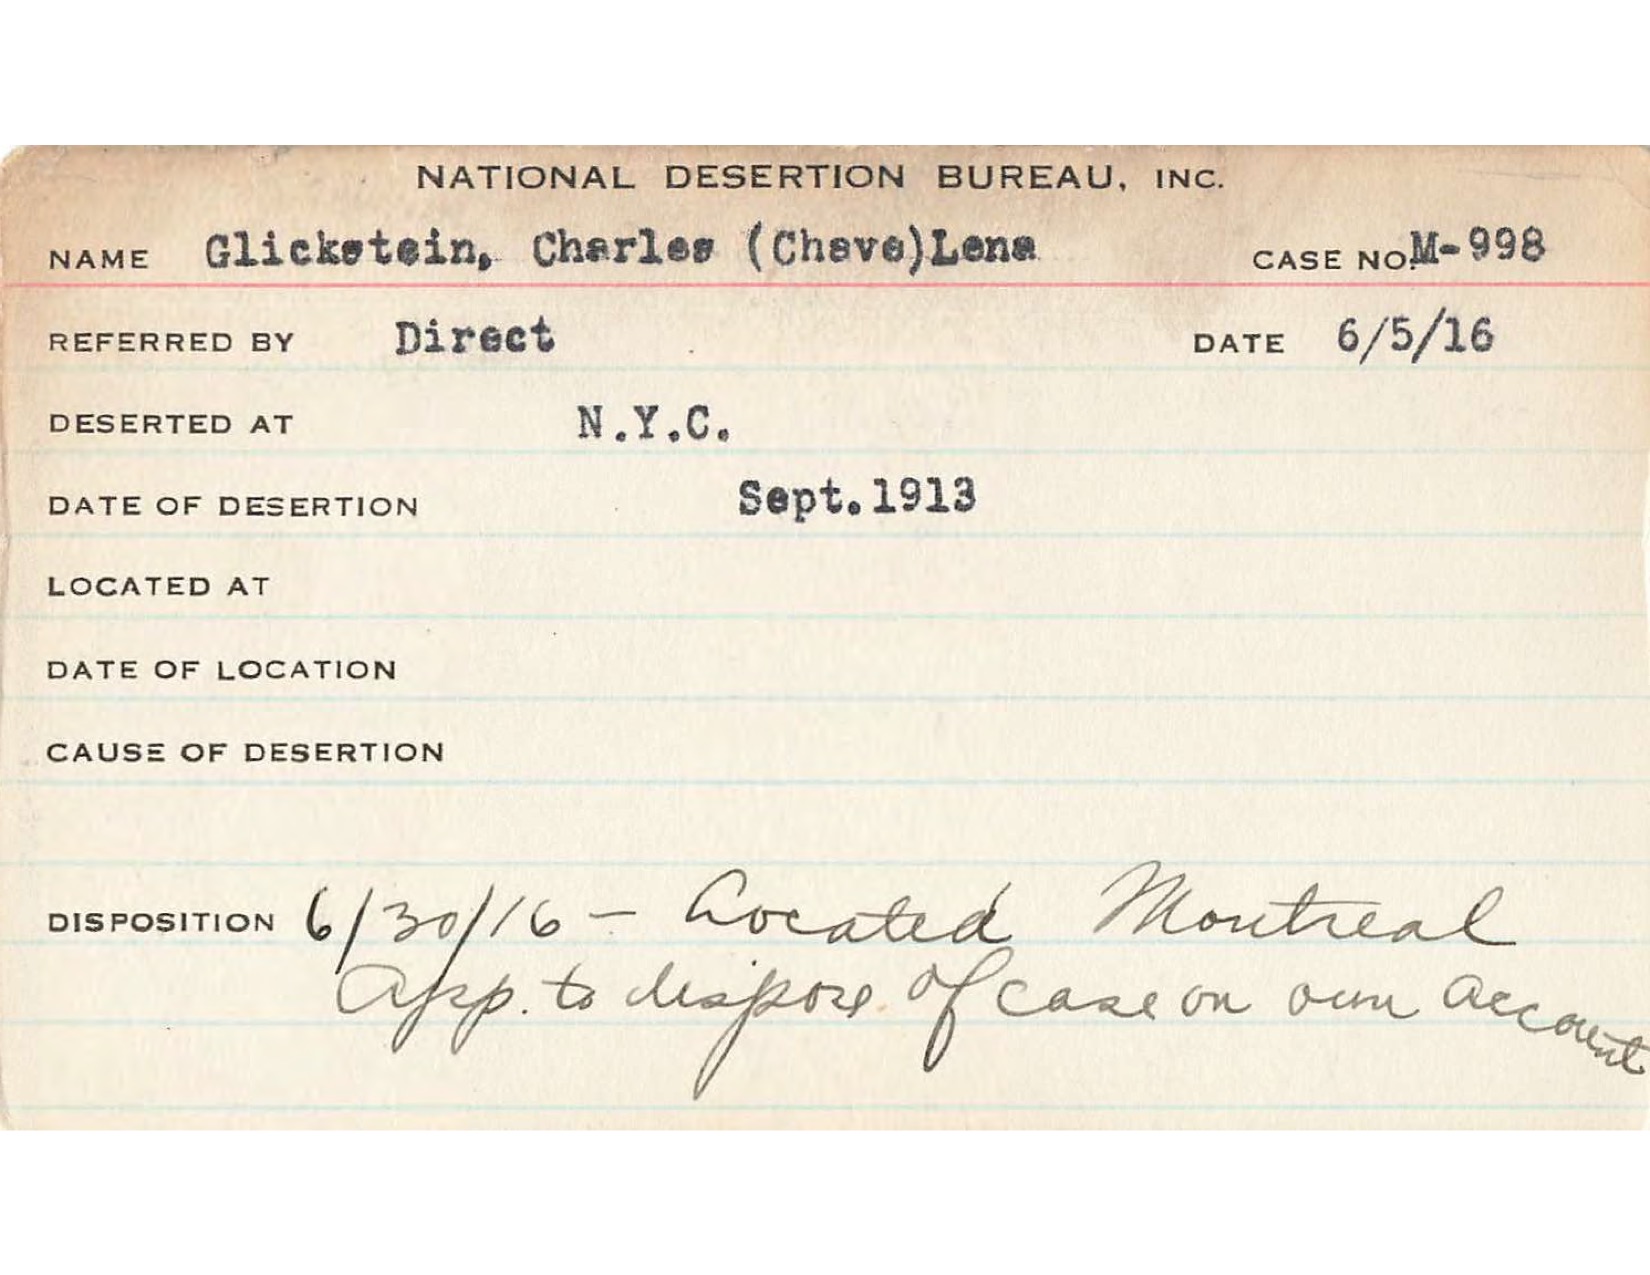 NATIONAL DESERTION BUREAU, INC.
NAME Glickstein, Charles (Chave)Lena CASE NO. M-998
REFERRED BY Direct DATE 6/5/16
DESERTED AT N.Y.C.
DATE OF DESERTION Sept.1913
LOCATED AT
DATE OF LOCATION
CAUSE OF DESERTION
DISPOSITION 6/30/16 - Located Montreal
App. to dispose of case on own account